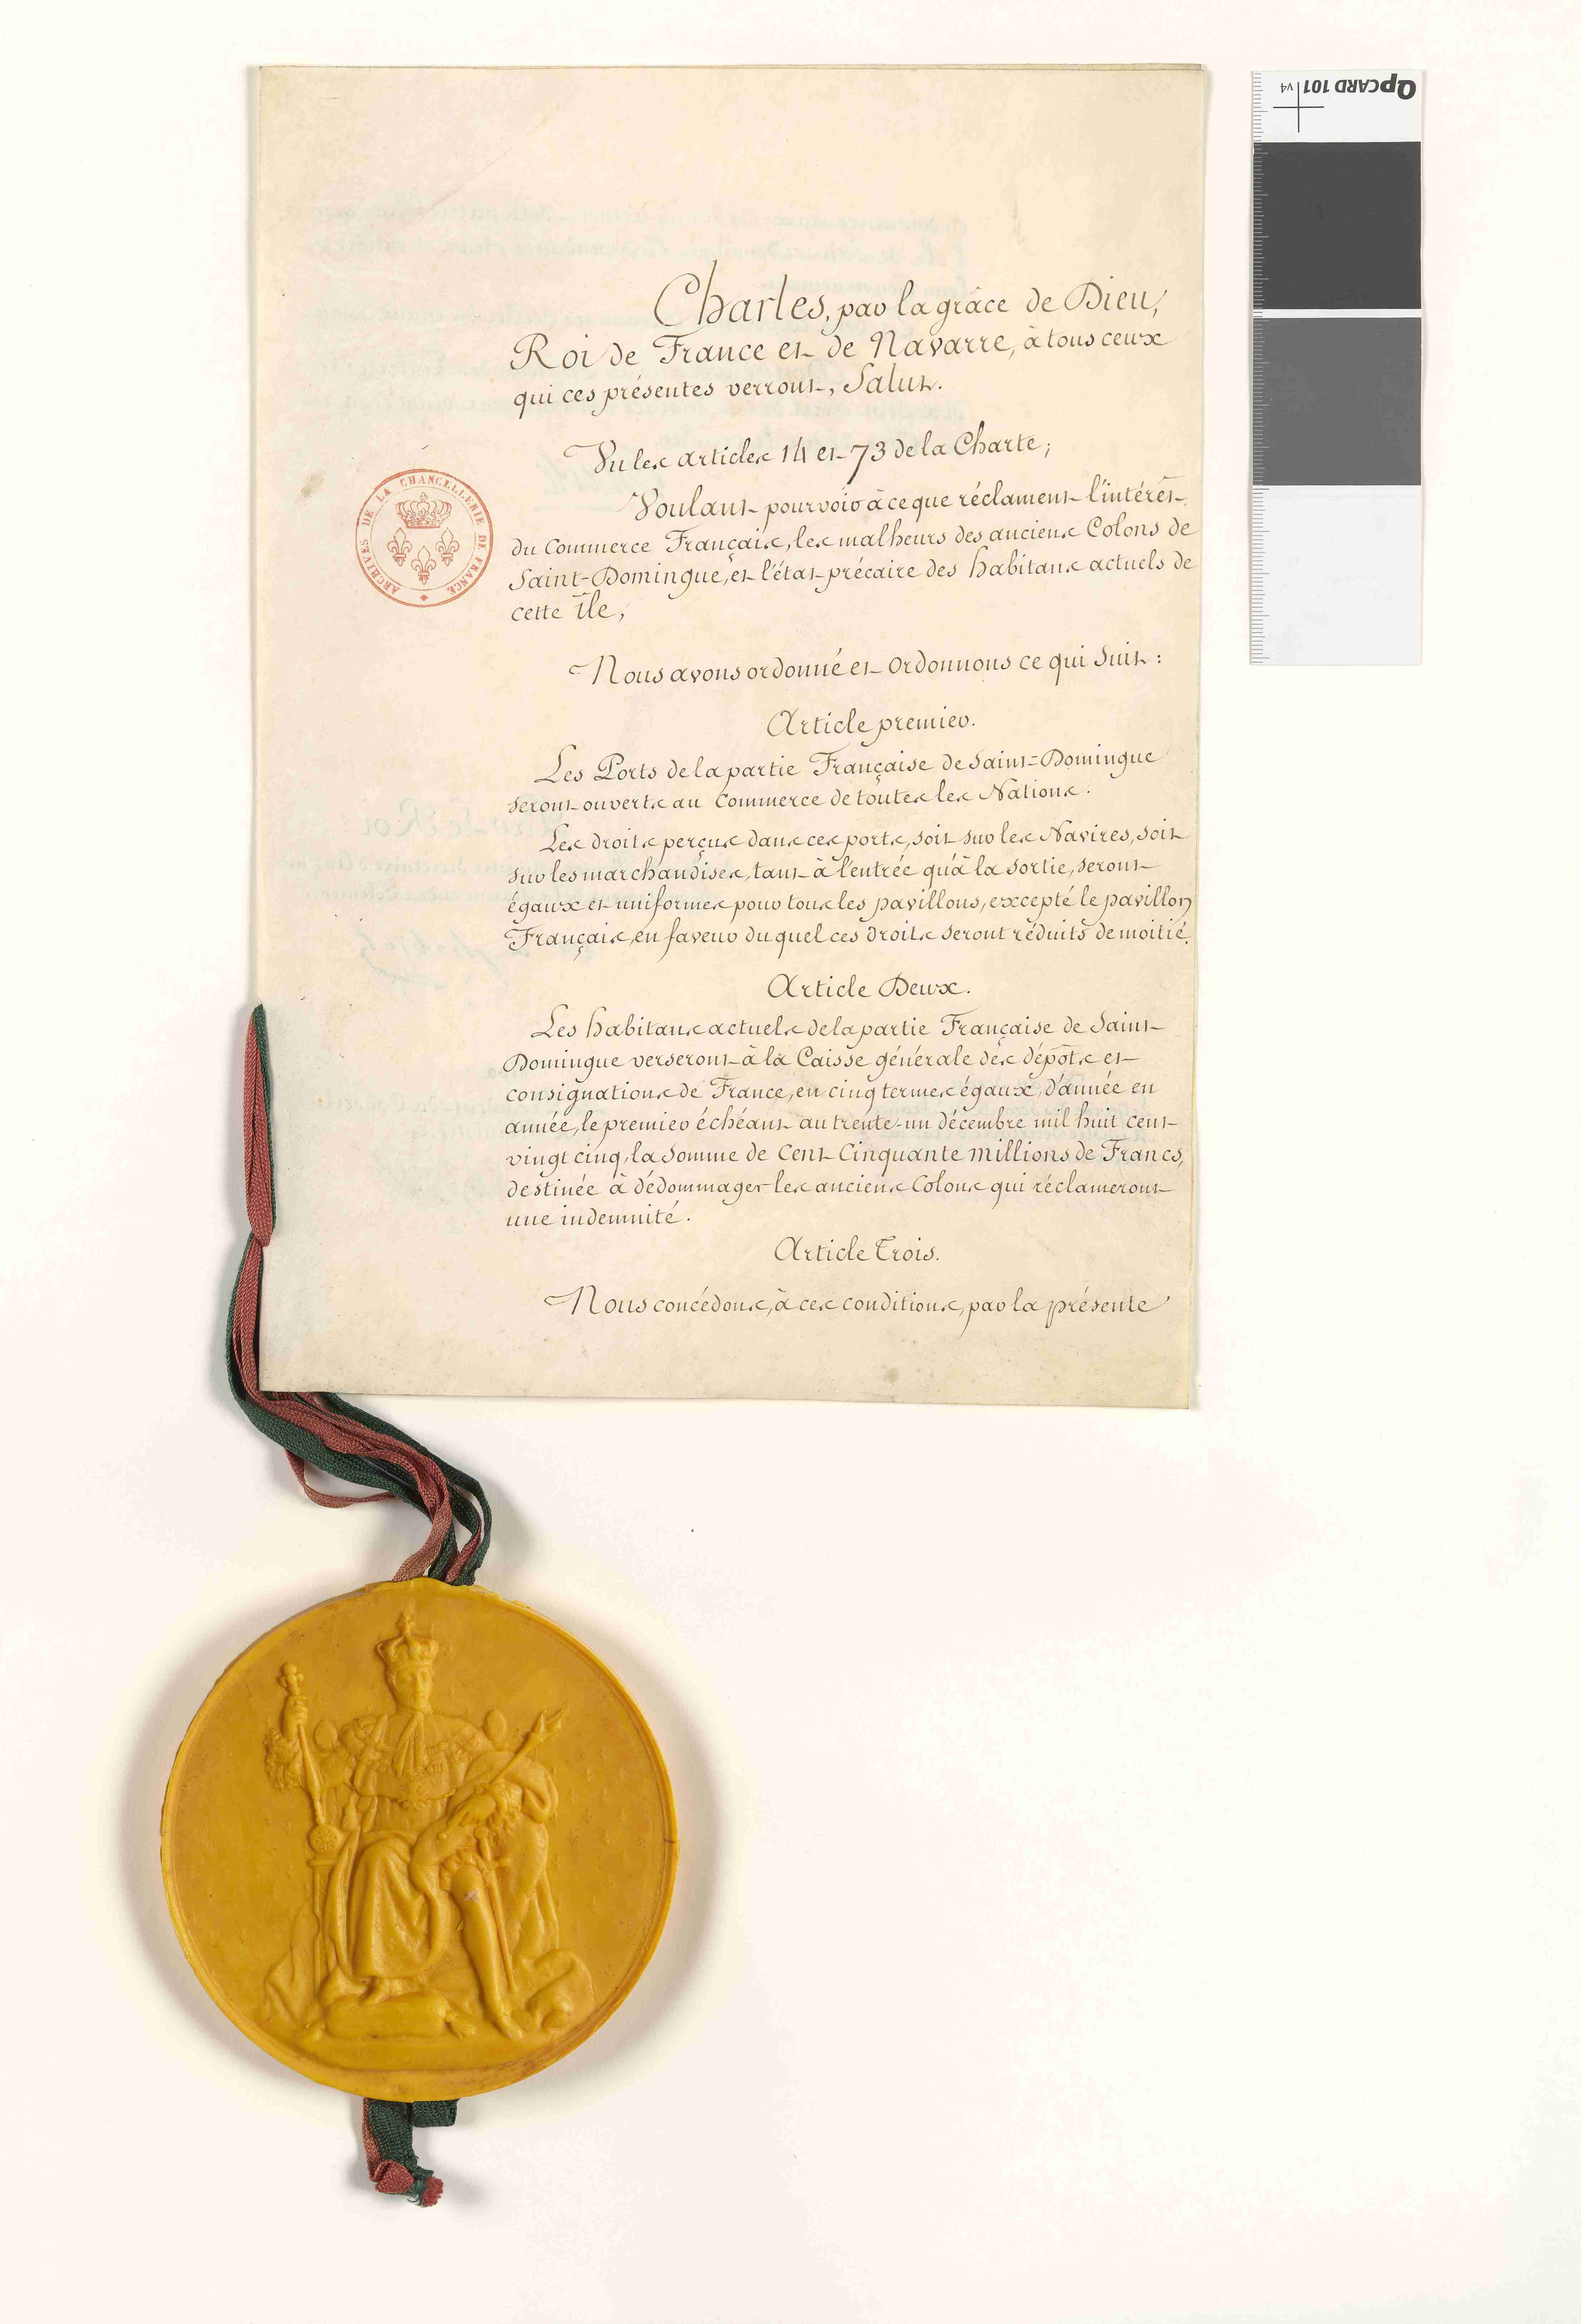 Charles, par la grâce de Dieu,
Roi de France et de Navarre, à tous ceux
qui ces présentes verront, Salut.
Vu les articles 14 et 73 de la Charte;
Voulant pourvoir à ce que réclament l'intérêt
du Commerce Français, les malheurs des anciens Colons de
Saint-Domingue, et l'état précaire des habitans actuels de
cette île,
Nous avons ordonné et ordonnons ce qui suit:
Article premier.
Les Ports de la partie Française de Saint-Domingue
seront ouverts au Commerce de toutes les Nations.
Les droits perçus dans ces ports, soit sur les Navires, soit
sur les marchandises, tant à l'entrée qu'à la sortie, seront
égaux et uniformes pour tous les pavillons, excepté le pavillon
Français, en faveur duquel ces droits seront réduits de moitié.
Article Deux.
Les habitans actuels de la partie Française de Saint-
Domingue verseront à la Caisse générale des dépôts et
consignations de France, en cinq termes égaux, d'année en
année, le premier échéant au trente-un décembre mil huit cent
vingt cinq, la somme de Cent Cinquante millions de Francs,
destinée à dédommager les anciens Colons qui réclameront
une indemnité.
Article Trois.
Nous concédons, à ces conditions, par la présente
ARCHIVES DE LA CHANCELLERIE DE FRANCE
QPCARD 101 v4